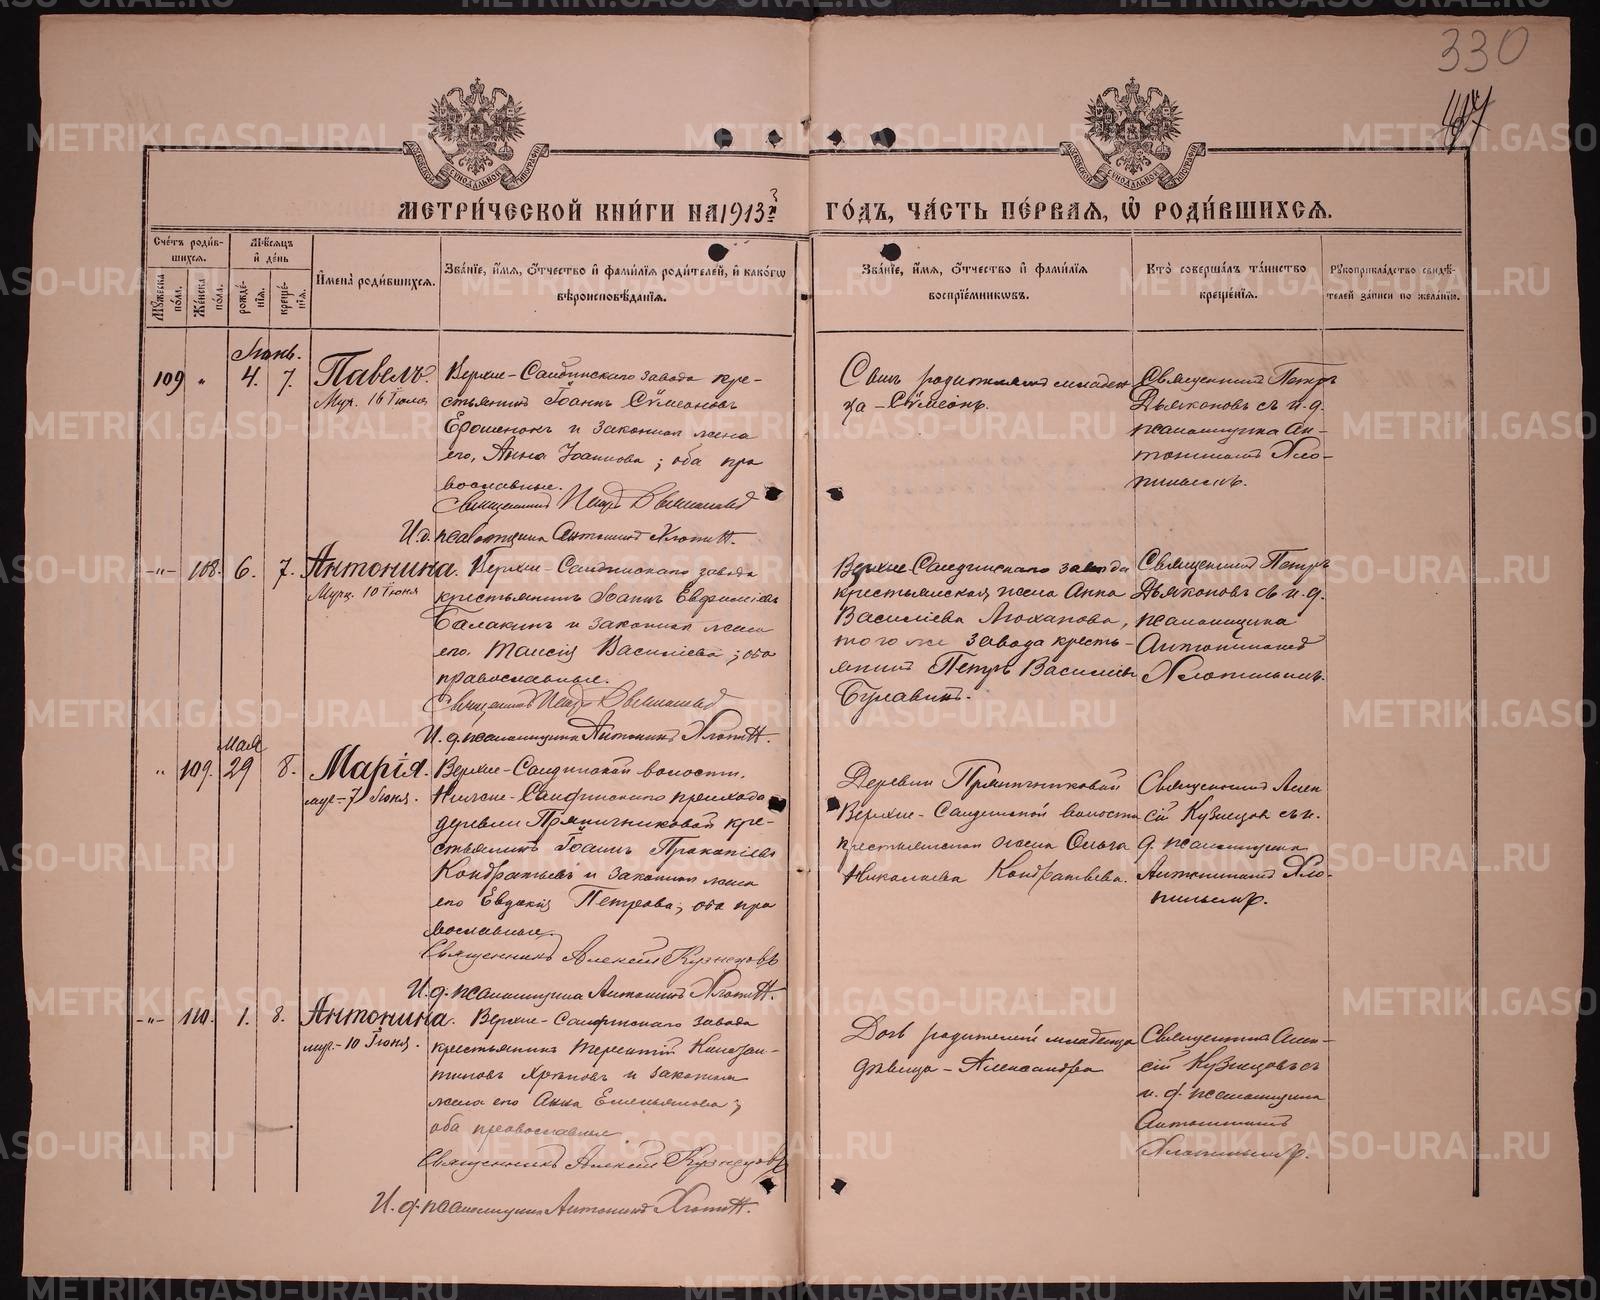 330
447
МЕТРИ́ЧЕСКОЙ КНИ́ГИ НА 1913й
ГО́ДЪ, ЧА́СТЬ ПЕ́РВАЯ, Ѡ РОДИ́ВШИХСЯ.
Сче́тъ роди́в-
шихся.
Мꙋжеска по́ла.
Же́нска по́ла.
Мѣ́сяцъ
и де́нь
рожде́нія.
креще́нія.
Имена̀ роди́вшихся.
Зва́ніе, и́мя, о́тчество и фами́лія роди́телей, и како́гѡ
вѣроисповѣ́данія.
Зва́ніе, и́мя, о́тчество и фами́лія
воспріе́мникѡвъ.
Кто̀ соверша́лъ та́инство
креще́нія.
Рꙋкоприкла́дство свидѣ́-
телей за́писи по жела́нію.
Іюнь.
109 „ 4. 7. Павелъ.
Мур. 16 Іюля
Верхне-Салдинскаго завода кре-
стьянинъ Іоаннъ Сѵмеоновъ
и законная жена
его, Анна Іоаннова; оба пра
вославные.
Священникъ Петръ Дьяконовъ
И.д. псаломщика Антонинъ
Сынъ родителей младен
ца - Сѵмеонъ.
Священникъ Петръ
Дьяконовъ съ и.д.
псаломщика Ан-
тониномъ Хло-
пинымъ.
-„- 108. 6. 7. Антонина.
Мурц. 10 Іюня
Верхне-Салдинскаго завода
крестьянинъ Іоаннъ Евфиміевъ
Балакинъ и законная жена
его Таисія Васильева; оба
православные.
Священникъ Петръ Дьяконовъ
И.д. псаломщика Антонинъ
Верхне Салдинскаго завода
крестьянская жена Анна
Васильева
того же завода кресть-
янинъ Петръ Васильевъ
Булавинъ.
Священникъ Петръ
Дьяконовъ съ и.д.
псаломщика
Антониномъ
Хлопинымъ.
Мая
„ 109. 29 8. Марія.
мур-7 Іюня.
Верхне-Салдинской волости,
Нижне-Салдинскаго прихода
деревни Пряничниковой кре-
стьянинъ Іоаннъ Прокопіевъ
Кондратьевъ и законная жена
его Евдокія Петрова; оба пра
вославные.
Священникъ Алексій Кузнецовъ
И.д. псаломщика Антонинъ
Деревни Пряничниковой
Верхне-Салдинской волости
крестьянская жена Ольга
Николаева Кондратьева.
Священникъ Алек
сій Кузнецовъ съ и.
д. псаломщика
Антониномъ Хло-
пинымъ.
-„- 110. 1. 8. Антонина.
мур-10 Іюня.
Верхне-Салдинскаго завода
крестьянинъ Терентій Констан-
тиновъ и законная
жена его Анна Емельянова;
оба православные.
Священникъ Алексій Кузнецовъ
И.д. псаломщика Антонинъ
Дочь родителей младенца
дѣвица - Александра
Священникъ Алек-
сій Кузнецовъ съ
и.д. псаломщика
Антониномъ
Хлопинымъ.
METRIKI.GASO-URAL.RU